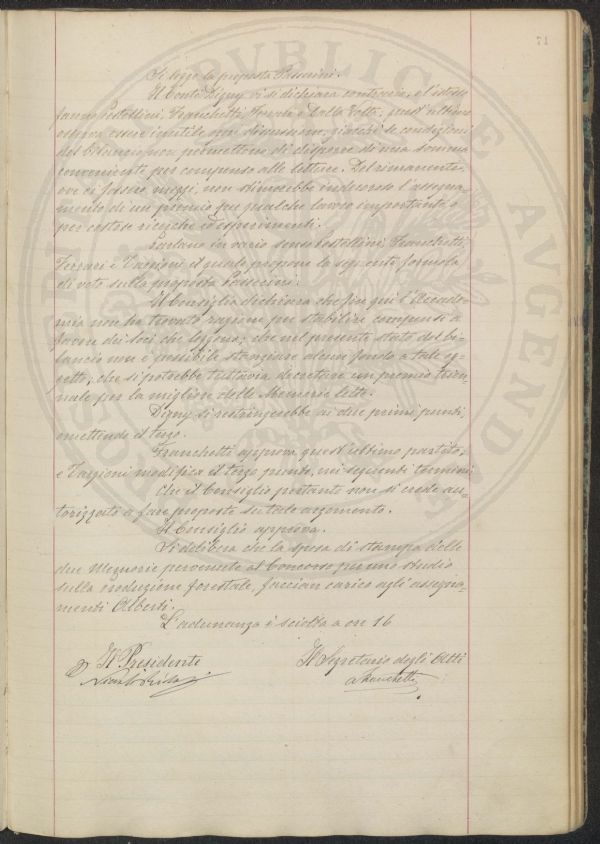 71
Si legge la proposta Passerini.
Il Conte Digny vi si dichiara contrario, e l'istesso
fanno Pestellini, Franchetti, Ferrari e Dalla Volta; quest'ultimo
osserva essere inutile ogni discussione, giacchè le condizioni
del bilancio non permettono di disporre di una somma
conveniente per compenso alle letture. Del rimanente
ove ci fossero mezzi, non stimerebbe indecoroso l'assegna-
mento di un premio per qualche lavoro importante o
per costose ricerche ed esperimenti.
Parlano in vario senso Pestellini, Franchetti,
Ferrari e Targioni il quale propone la seguente formola
di voto sulla proposta Passerini.
Il Consiglio dichiara che fin qui l'Accade-
mia non ha trovato ragione per stabilire compensi a
favore dei soci che leggono; che nel presente stato del bi-
lancio non è possibile stanziare alcun fondo a tale og-
getto; che si potrebbe tuttavia, decretare un premio trien-
nale per la migliore delle Memorie lette.
Digny si restringerebbe ai due primi punti
omettendo il terzo.
Franchetti approva quest'ultimo partito;
e Targioni modifica il terzo punto, nei seguenti termini
Che il Consiglio pertanto non si crede au-
torizzato a fare proposte su tale argomento.
Il Consiglio approva.
Si delibera che la spesa di stampa delle
due Memorie pervenute al Concorso per uno studio
sulla produzione forestale, faccian carico agli assegna-
menti Alberti.
L'adunanza è sciolta a ore 16
Il Presidente
Il Segretario degli Atti
A Franchetti
PVBLICAE
AVGENDAE